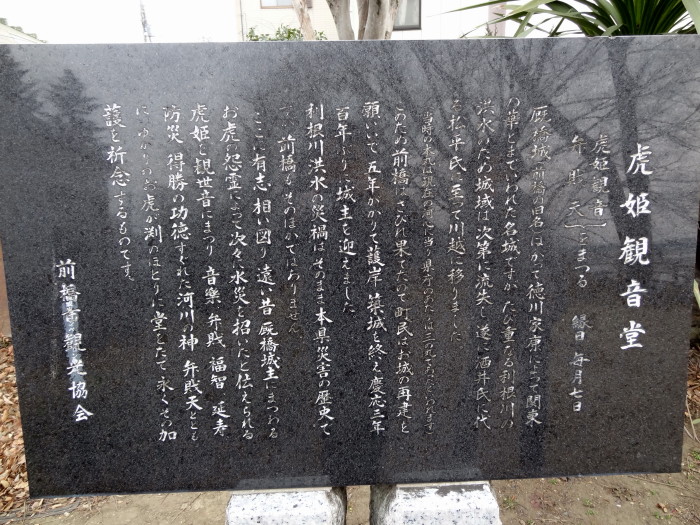 虎姫観音堂
虎姫観音
弁財天
をまつる 縁日 毎月七日
厩橋城(前橋の旧名)はかつて徳川家康によって関東
の華とまでいわれた名城ですが たび重なる利根川の
洪水のため城域は次第に流失し 遂に酒井氏に代
る松平氏に至って川越に移りました。
このため前橋はさびれ果てたので町民はお城の再建を
願いいで 五年がかりで護岸 築城を終え慶応三年
百年ぶりに城主を迎えました。
利根川洪水の災禍はそのまま本県災害の歴史で
す。前橋もそのほかではありません。
ここに有志 相い図り 遠い昔厩橋城主にまつわる
お虎の怨霊によって次々と水災を招いたと伝えられる
虎姫を観世音にまつり 音楽 弁財 福智 延寿
防災 得勝の功徳すぐれた河川の神 弁財天ととも
に ゆかりのお虎が渕のほとりに堂をたて 永くその加
護を祈念するものです。
前橋市観光協会